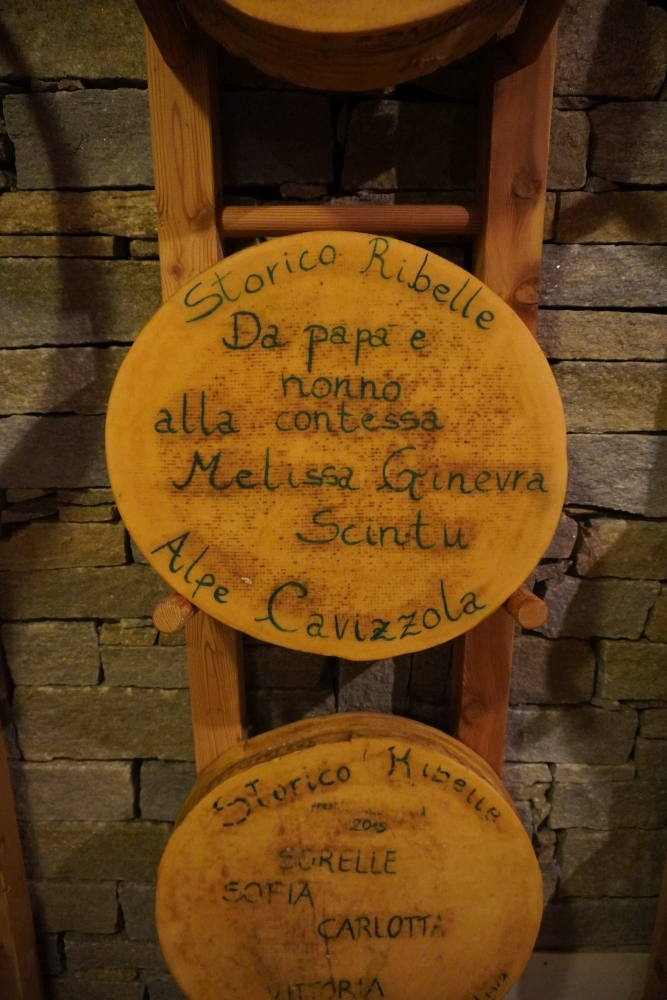 Storico Ribelle
Da papà e
nonno
alla contessa
Melissa Ginevra
Scintu
Alpe Cavizzola
Storico Ribelle
2019
SORELLE
SOFIA
CARLOTTA
VITTORIA